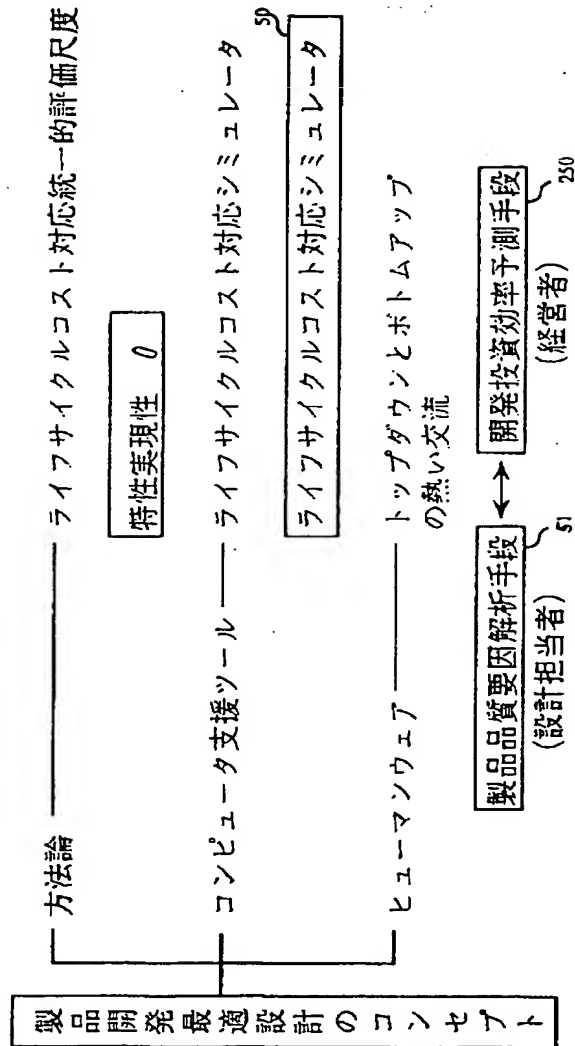 製品開発最適設計のコンセプト
方法論
ライフサイクルコスト対応統一的評価尺度
特性実現性 θ
コンピュータ支援ツール
ライフサイクルコスト対応シミュレータ
ライフサイクルコスト対応シミュレータ
50
ヒューマンウェア
トップダウンとボトムアップ
の熱い交流
製品品質要因解析手段
(設計担当者)
51
開発投資効率予測手段
(経営者)
250